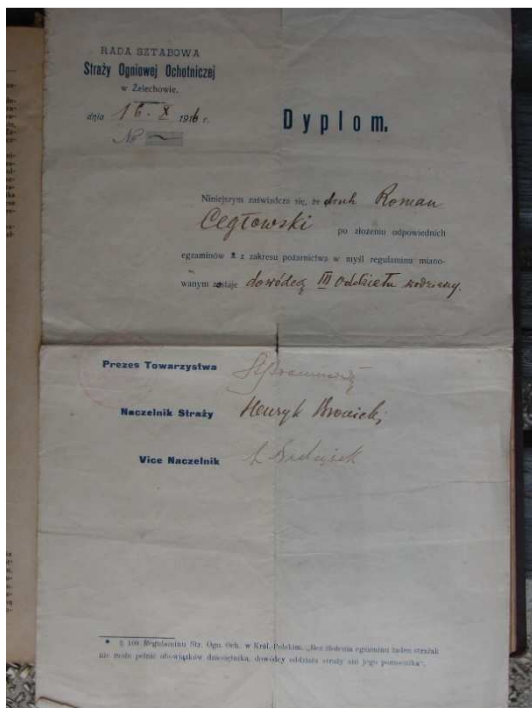 RADA SZTABOWA
Straży Ogniowej Ochotniczej
w Żelechowie.
dnia 16. X 1916 r.
№
Dyplom.
Niniejszym zaświadcza się, że druh Roman
Cegłowski po złożeniu odpowiednich
egzaminów * z zakresu pożarnictwa w myśl regulaminu miano-
wanym zostaje dowódcą III Oddziału wodnego.
Prezes Towarzystwa
Naczelnik Straży Henryk Bronicki
Vice Naczelnik
* § 106 Regulaminu Str. Ogn. Och. w Król. Polskim. „Bez złożenia egzaminu żaden strażak
nie może pełnić obowiązków dziesiętnika, dowódcy oddziału straży ani jego pomocnika“.